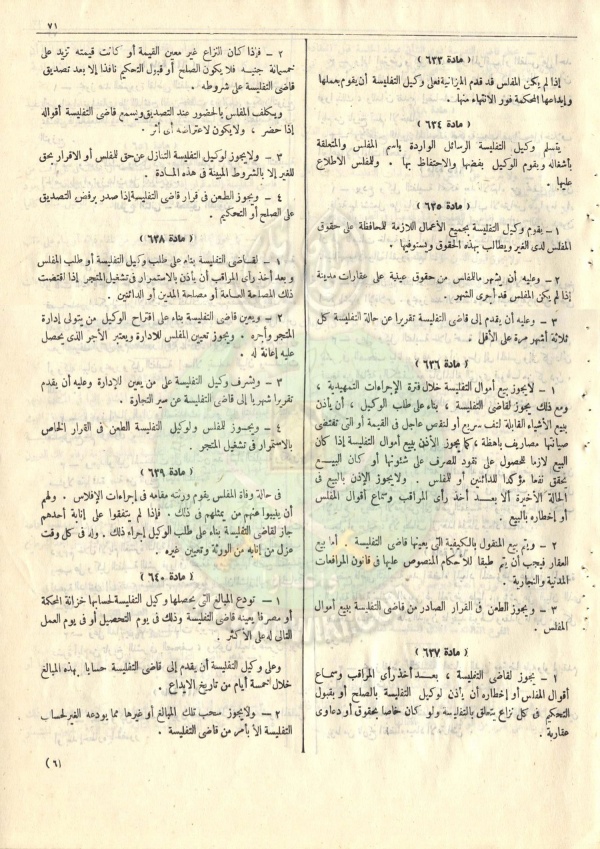 ٧١
( مادة ٦٣٣ )
إذا لم يكن المفلس قد قدم الميزانية فعلى وكيل التفليسة أن يقوم بعملها
وإيداعها المحكمة فور الانتهاء منها .
( مادة ٦٣٤ )
يتسلم وكيل التفليسة الرسائل الواردة باسم المفلس والمتعلقة
بأشغاله ويقوم الوكيل بفضها والاحتفاظ بها . وللمفلس الاطلاع
عليها .
( مادة ٦٣٥ )
١ – يقوم وكيل التفليسة بجميع الأعمال اللازمة للمحافظة على حقوق
المفلس لدى الغير ويطالب بهذه الحقوق ويستوفيها .
٢ – وعليه أن يشهر ماللمفلس من حقوق عينية على عقارات مدينة
إذا لم يكن المفلس قد أجرى الشهر .
٣ – وعليه أن يقدم إلى قاضى التفليسة تقريرا عن حالة التفليسة كل
ثلاثة أشهر مرة على الأقل .
( مادة ٦٣٦ )
١ – لايجوز بيع أموال التفليسة خلال فترة الإجراءات التمهيدية ،
ومع ذلك يجوز لقاضى التفليسة ، بناء على طلب الوكيل ، أن يأذن
ببيع الأشياء القابلة لتلف سريع أو لنقص عاجل فى القيمة أو التى تقتضى
صيانتها مصاريف باهظة ، كما يجوز الاذن ببيع أموال التفليسة إذا كان
البيع لازما للحصول على نقود للصرف على شئونها أو كان البيع
يحقق نفعا مؤكدا للدائنين أو للمفلس . ولايجوز الإذن بالبيع فى
الحالة الأخيرة ألا بعد أخذ رأى المراقب وسماع أقوال المفلس
أو إخطاره بالبيع .
٢ – ويتم بيع المنقول بالكيفية التى يعينها قاضى التفليسة . أما بيع
العقار فيجب أن يتم طبقا للأحكام المنصوص عليها فى قانون المرافعات
المدنية والتجارية .
٣ – ويجوز الطعن فى القرار الصادر من قاضى التفليسة ببيع أموال
المفلس .
( مادة ٦٣٧ )
١ – يجوز لقاضى التفليسة ، بعد أخذ رأى المراقب وسماع
أقوال المفلس أو إخطاره أن يأذن لوكيل التفليسة بالصلح أو بقبول
التحكيم فى كل نزاع يتعلق بالتفليسة ولو كان خاصا بحقوق أو دعاوى
عقارية .
٢ – فإذا كان النزاع غير معين القيمة أو كانت قيمته تزيد على
خمسمائة جنيه فلا يكون الصلح أو قبول التحكيم نافذا إلا بعد تصديق
قاضى التفليسة على شروطه .
ويكلف المفلس بالحضور عند التصديق ويسمع قاضى التفليسة أقواله
إذا حضر ، ولايكون لاعتراضه أى أثر .
٣ – ولايجوز لوكيل التفليسة التنازل عن حق للمفلس أو الاقرار بحق
للغير إلا بالشروط المبينة فى هذه المادة .
٤ – ويجوز الطعن فى قرار قاضى التفليسة إذا صدر برفض التصديق
على الصلح أو التحكيم .
( مادة ٦٣٨ )
١ – لقاضى التفليسة بناء على طلب وكيل التفليسة أو طلب المفلس
وبعد أخذ رأى المراقب أن يأذن بالاستمرار فى تشغيل المتجر إذا اقتضت
ذلك المصلحة العامة أو مصلحة المدين أو الدائنين .
٢ – ويعين قاضى التفليسة بناء على اقتراح الوكيل من يتولى إدارة
المتجر وأجره . ويجوز تعيين المفلس للادارة ويعتبر الأجر الذى يحصل
عليه إعانة له .
٣ – ويشرف وكيل التفليسة على من يعين للإدارة وعليه أن يقدم
تقريرا شهريا إلى قاضى التفليسة عن سير التجارة .
٤ – ويجوز للمفلس ولوكيل التفليسة الطعن فى القرار الخاص
بالاستمرار فى تشغيل المتجر .
( مادة ٦٣٩ )
فى حالة وفاة المفلس يقوم ورثته مقامه فى إجراءات الإفلاس . ولهم
أن ينيبوا عنهم من يمثلهم فى ذلك . فإذا لم يتفقوا على إنابة أحدهم
جاز لقاضى التفليسة بناء على طلب الوكيل إجراء ذلك . وله فى كل وقت
عزل من إنابه من الورثة وتعيين غيره .
( مادة ٦٤٠ )
١ – تودع المبالغ التى يحصلها وكيل التفليسة لحسابها خزانة المحكمة
أو مصرفا يعينه قاضى التفليسة وذلك فى يوم التحصيل أو فى يوم العمل
التالى له على الأكثر .
وعلى وكيل التفليسة أن يقدم إلى قاضى التفليسة حسابا بهذه المبالغ
خلال خمسة أيام من تاريخ الإيداع .
٢ – ولايجوز سحب تلك المبالغ أو غيرها مما يودعه الغير لحساب
التفليسة الا بأمر من قاضى التفليسة .
(٦)